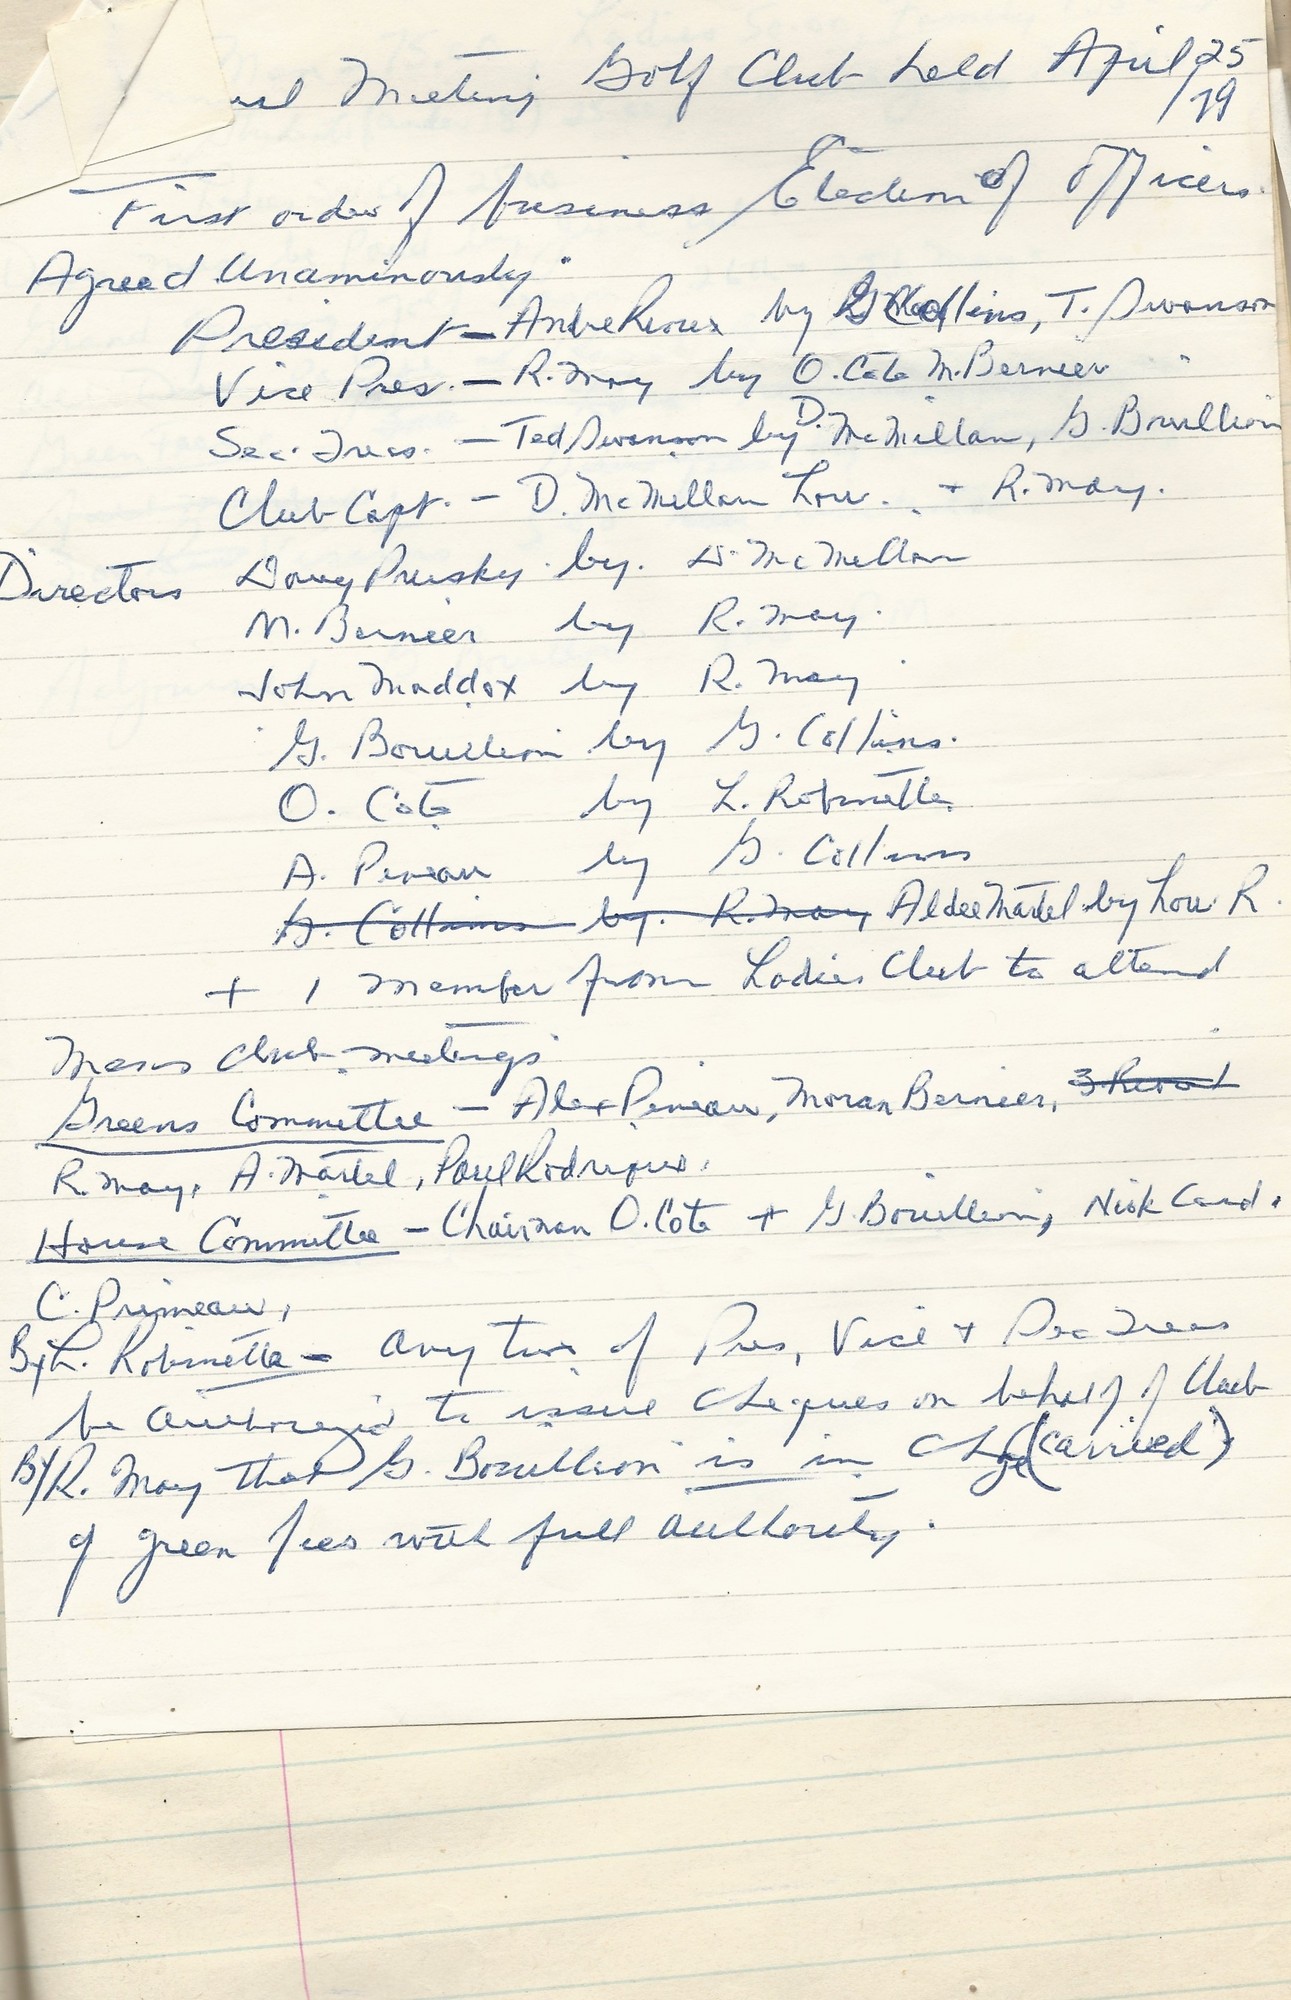 ual Meeting Golf Club held April 25
/79
First order of business Election of officers.
Agreed Unaminously.
President - Andre Rioux by G. Collins, T. Swanson
Vice Pres. - R. May by O. Cote M. Bernier "
Sec. Treas. - Ted Swanson by D. McMillan, G. Bouillion
Club Capt. - D. McMillan Lou. + R. May.
Directors Doug Prusky by. D. McMillan
M. Bernier by R. May.
John Maddox by R. May
G. Bouillion by G. Collins.
O. Cote by L. Robinette
A. Pineau by G. Collins
G. Collins by. R. May Aldee Martel by Lou R.
+ 1 member from Ladies Club to attend
Mens club meetings
Greens Committee - Alex Pineau, Moran Bernier,
R. May, A. Martel, Paul Rodrique.
House Committee - Chairman O. Cote + G. Bouillion, Nick Card.
C. Primeau,
By L. Robinette - any two of Pres, Vice + Sec Treas
be authorized to issue cheques on behalf of Club
(carried)
By R. May that G. Bouillion is in chge
of green fees with full authority.